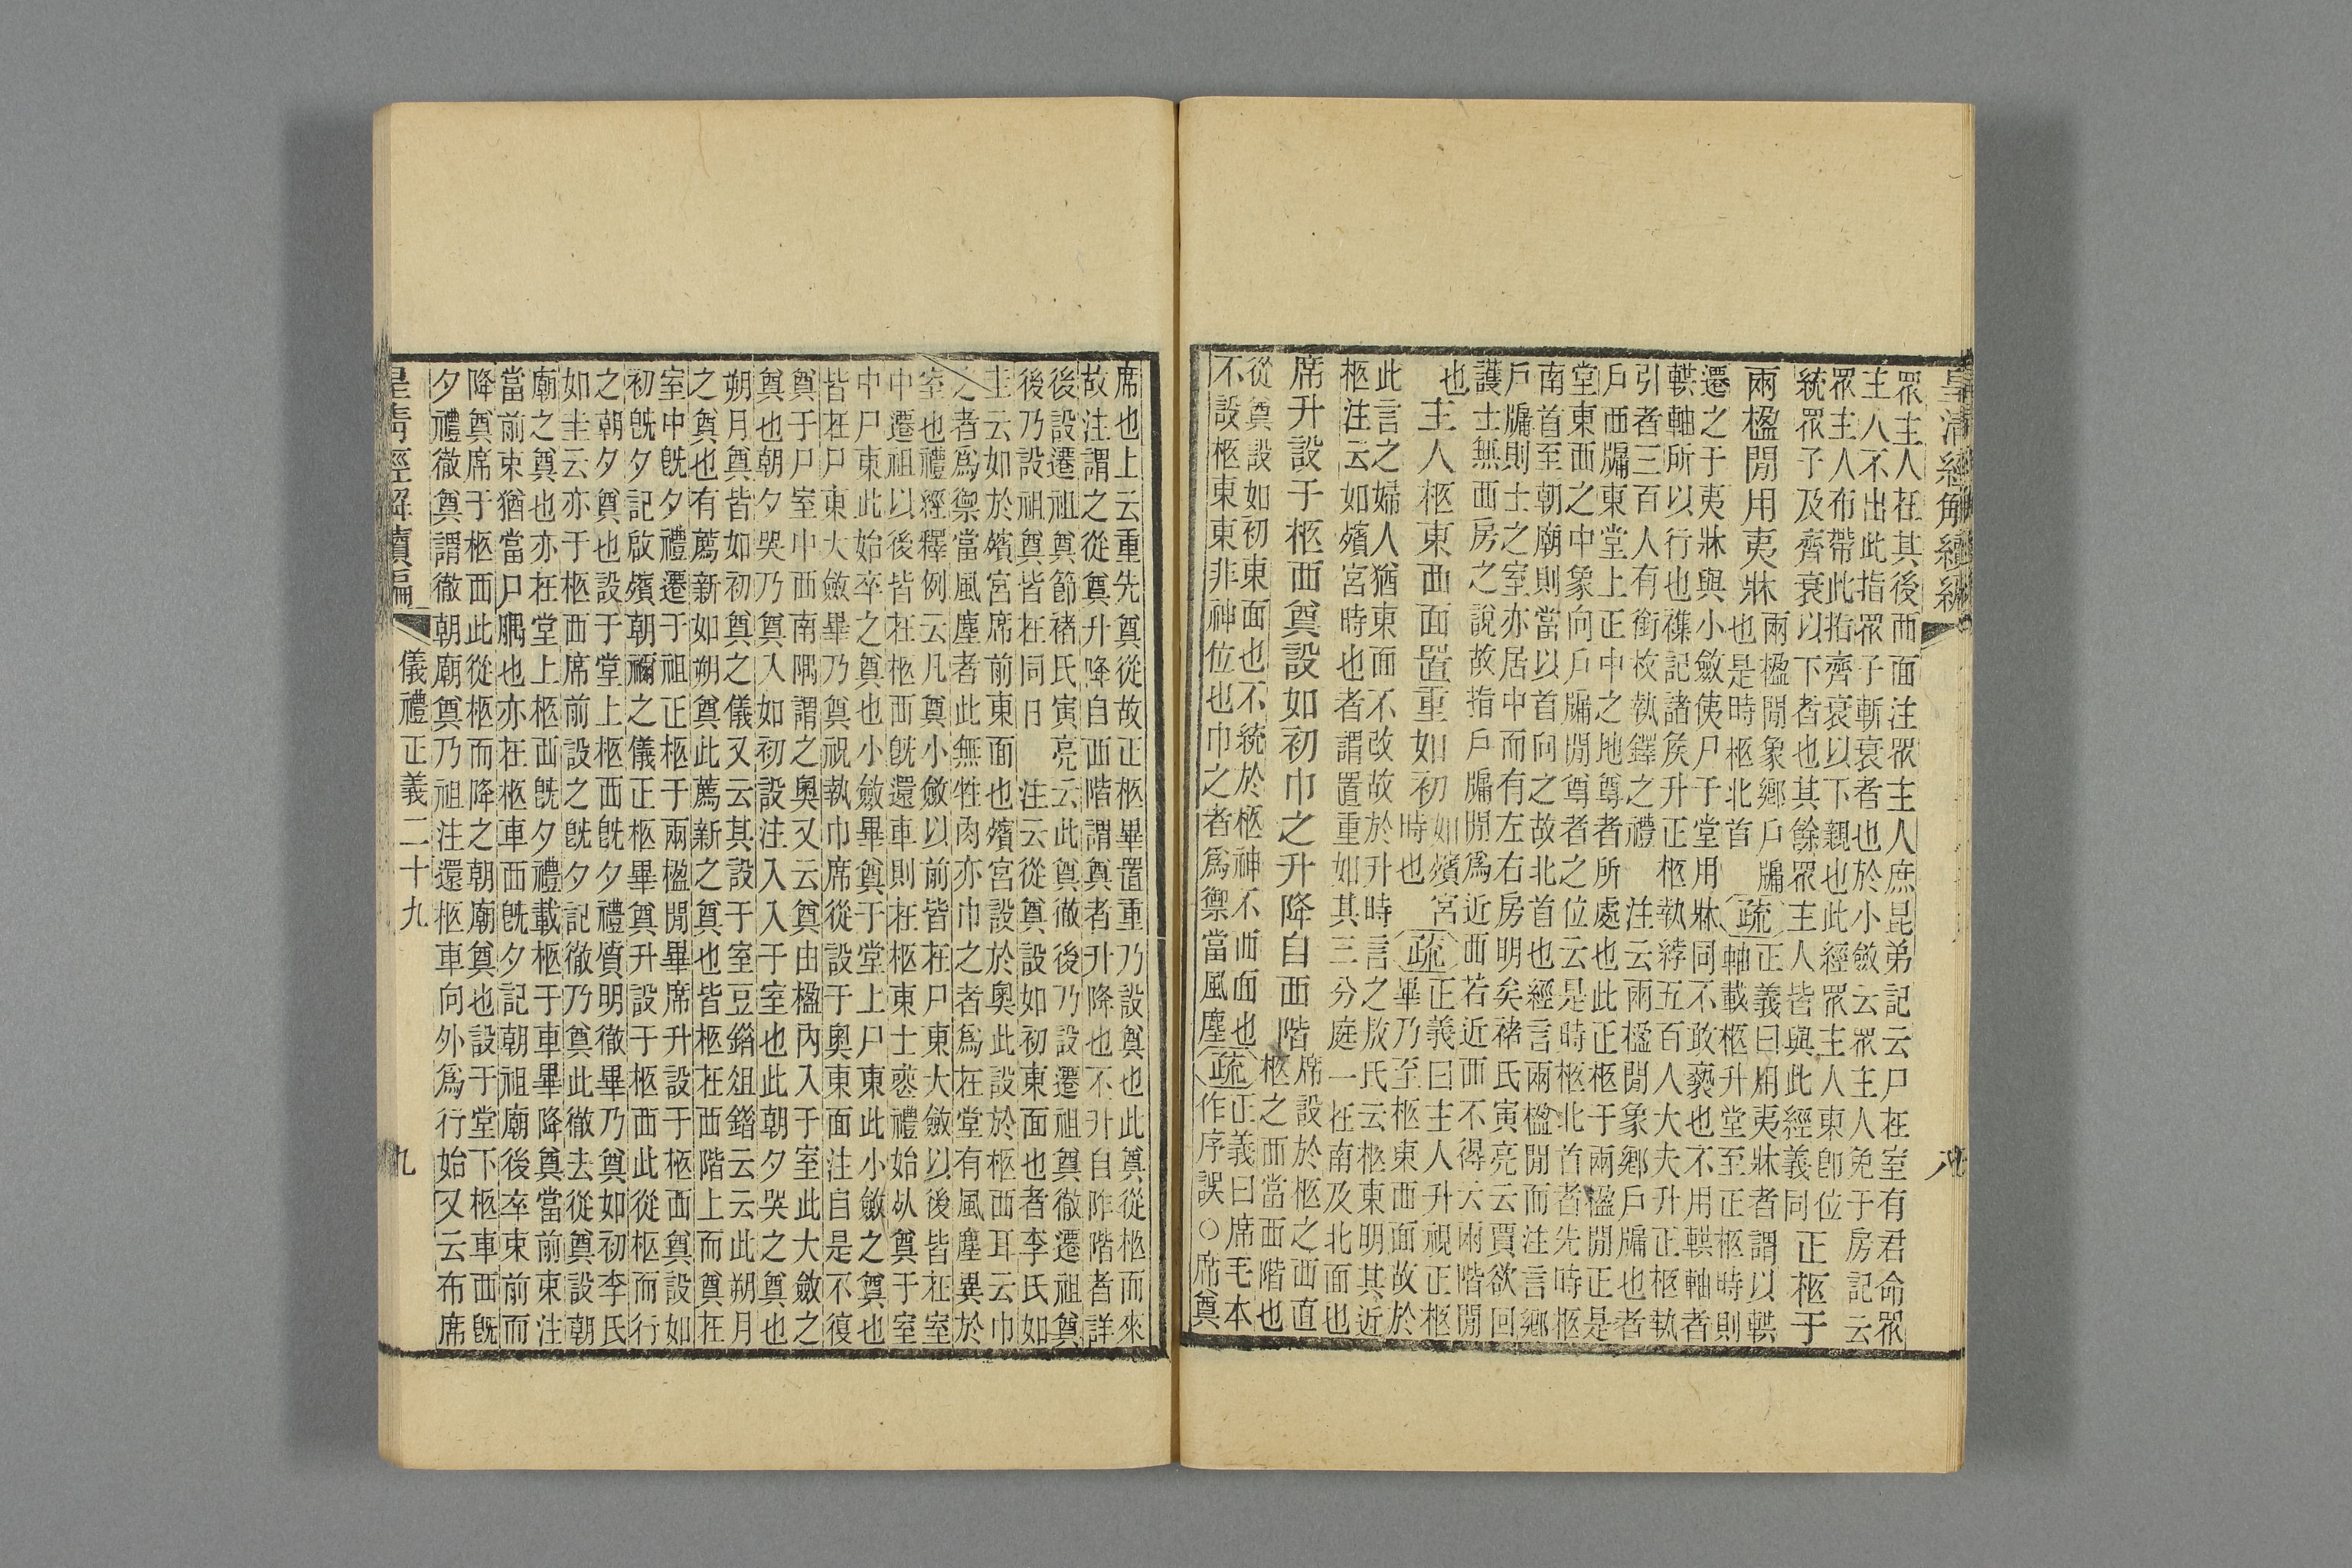 皇清經解續編
八
眾主人在其後而面注眾主人庶昆弟記云尸在室有君命眾
主人不出此指眾子斬衰者也於小斂云眾主人免于房記云
眾主人布帶此指齊衰以下親也此經眾主人東即位
統眾子及齊衰以下者也其餘眾主人皆與此經義同
正柩于
兩楹閒用夷牀
兩楹閒象鄉戶牖
也是時柩北首
疏
正義曰用夷牀者謂以輁
軸載柩升堂至正柩時則
遷之于夷牀與小斂使尸于堂用牀同不敢褻也不用輁軸者
輁軸所以行也禭記諸侯升正柩執綍五百人大夫升正柩執
引者三百人有銜枚執鐸之禮　注云兩楹閒象鄉戶牖也者
戶西牖東堂上正中之地尊者所處也此正柩于兩楹閒正是
堂東西之中象向戶牖閒尊者之位云是時柩北首者先時柩
南首至朝廟則當以首向之故北首也經言兩楹閒而注言鄉
戶牖則士之室亦居中而有左右房明矣褚氏寅亮云賈欲回
護士無西房之說故指戶牖閒爲近西若近西不得云兩階閒
也
主人柩東西面置重如初
如殯宮
時也
疏
正義曰主人升視正柩
畢乃至柩東西面故於
此言之婦人猶東面不改故於升時言之敖氏云柩東明其近
柩注云如殯宮時也者謂置重如其三分庭一在南及北面也
席升設于柩西奠設如初巾之升降自西階
席設於柩之西直
柩之西當西階也
從奠設如初東面也不統於柩神不西面也
不設柩東東非神位也巾之者爲禦當風塵
疏
正義曰席毛本
作序誤○席奠
席也上云重先奠從故正柩畢置重乃設奠也此奠從柩而來
故注謂之從奠升降自西階謂奠者升降也不升自阼階者詳
後設遷祖奠節褚氏寅亮云此奠徹後乃設遷祖奠徹遷祖奠
後乃設祖奠皆在同日　注云從奠設如初東面也者李氏如
圭云如於殯宮席前東面也殯宮設於奧此設於柩西耳云巾
之者爲禦當風塵者此無牲肉亦巾之者爲在堂有風塵異於
室也禮經釋例云凡奠小斂以前皆在尸東大斂以後皆在室
中遷祖以後皆在柩西既還車則在柩東士喪禮始死奠于室
中尸東此始卒之奠也小斂畢奠于堂上尸東此小斂之奠也
皆在尸東大斂畢乃奠祝執巾席從設于奧東面注自是不復
奠于尸室中西南隅謂之奧又云奠由楹內入于室此大斂之
奠也朝夕哭乃奠入如初設注入入于室也此朝夕哭之奠也
朔月奠皆如初奠之儀又云其設于室豆錯俎錯云云此朔月
之奠也有薦新如朔奠此薦新之奠也皆柩在西階上而奠在
室中既夕禮遷于祖正柩于兩楹閒畢席升設于柩西奠設如
初既夕記啟殯朝禰之儀正柩畢奠升設于柩西此從柩而行
之朝夕奠也設于堂上柩西既夕禮質明徹畢乃奠如初李氏
如圭云亦于柩西席前設之既夕記徹乃奠此徹去從奠設朝
廟之奠也亦在堂上柩西既夕禮載柩于車畢降奠當前束注
當前束猶當尸腢也亦在柩車西既夕記朝祖廟後卒束前而
降奠席于柩西此從柩而降之朝廟奠也設于堂下柩車西既
夕禮徹奠謂徹朝廟奠乃祖注還柩車向外爲行始又云布席
皇清經解續編
儀禮正義二十九
九